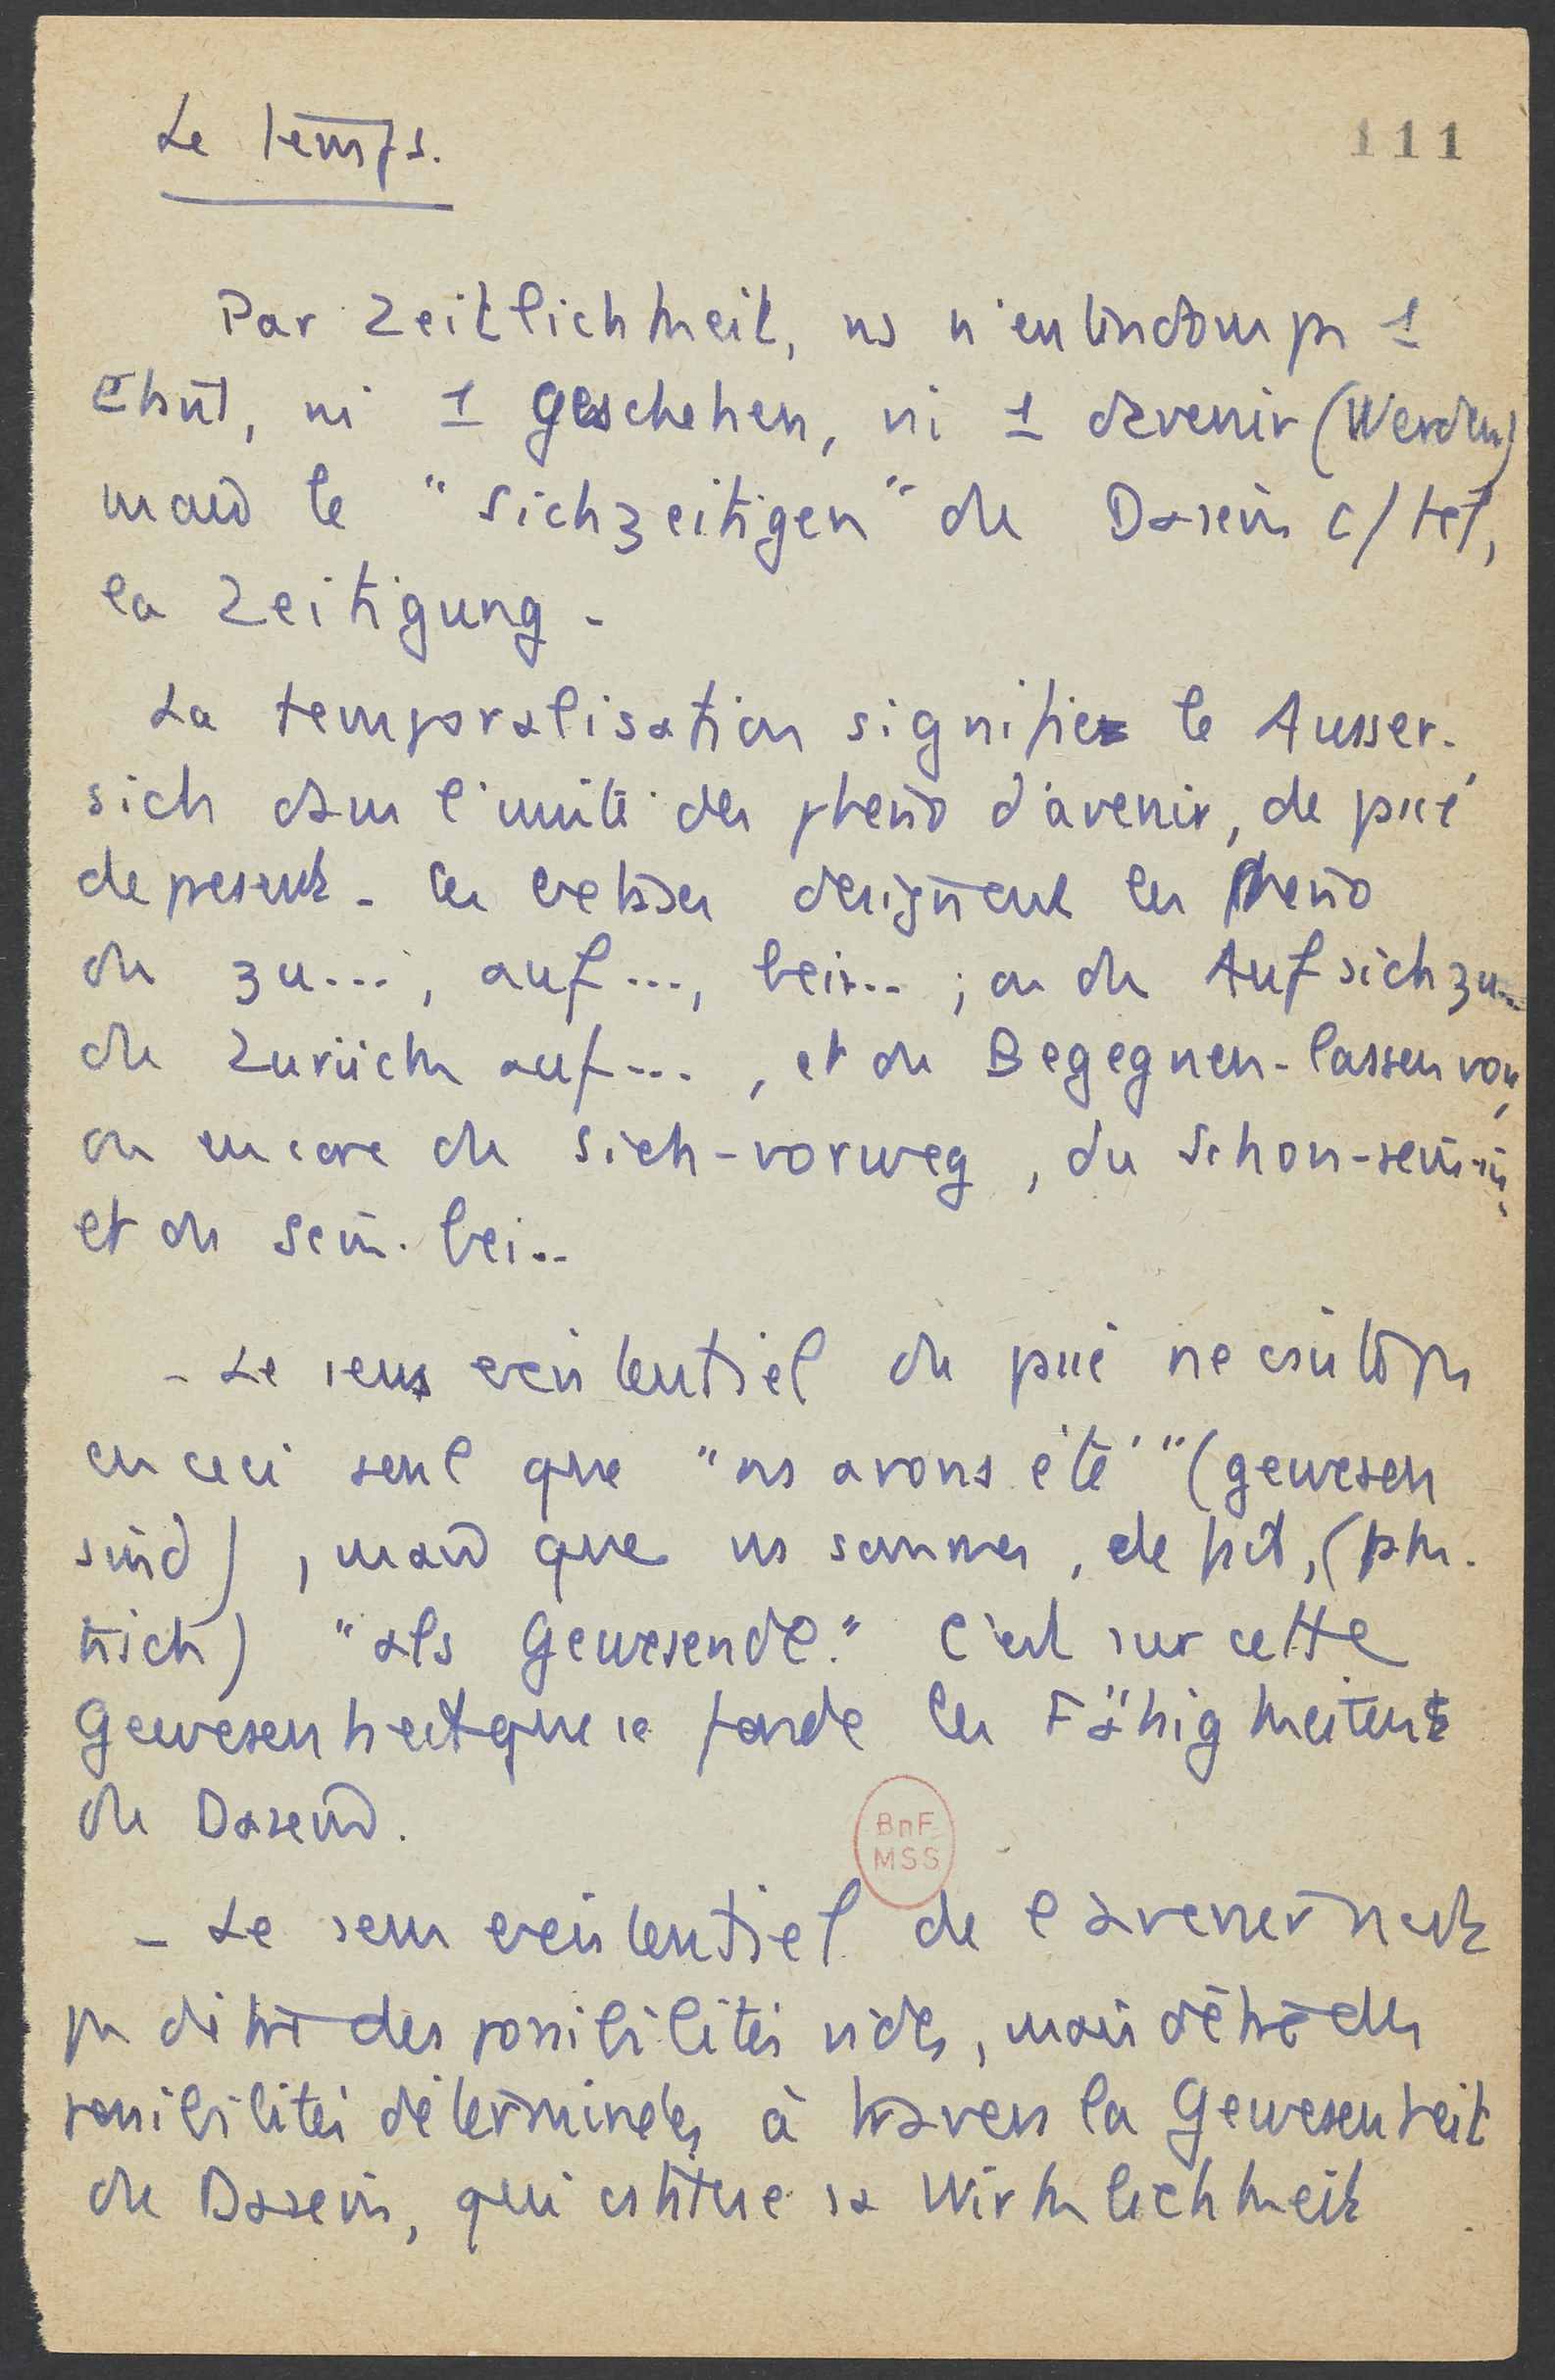 Le temps.
111
Par Zeitlichkeit, ns n'entendons pas 1
Etant, ni 1 geschehen, ni 1 devenir (Werden)
mais le "Sichzeitigen" du Dasein c/ tel,
la Zeitigung.
La temporalisation signifie le Ausser-
sich dans l'unité des pheno d'avenir, de passé
de present. Ces designent les pheno
du zu..., auf..., bei... ; ou du Auf sich zu...
du Zurück auf..., et du Begegnen-lassen von,
ou encore du Sich-vorweg, du Schon-sein-in,
et du Sein-bei..
- Le sens existentiel du passé ne consiste pas
en ceci seul que "ns avons été" (gewesen
sind), mais que ns sommes, de fait, (fak-
tisch) "als Gewesende." C'est sur cette
Gewesenheit que se fonde les Fähigkeiten
du Dasein.
BnF
MSS
- Le sens existentiel de l'avenir n'est
pas d'être des possibilités vides, mais d'être des
possibilités déterminées à travers la Gewesenheit
du Dasein, qui constitue sa Wirklichkeit